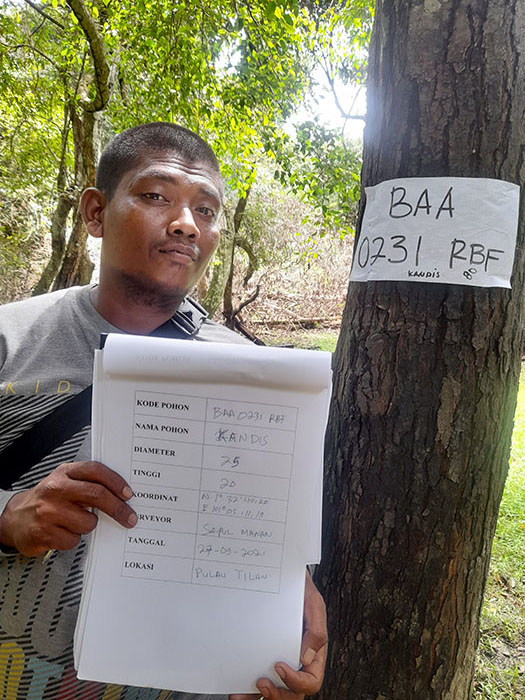 BAA
0231 RBF
KANDIS
KODE POHON BAA 0231 RBF
NAMA POHON KANDIS
DIAMETER 25
TINGGI 20
KOORDINAT N 1° 32'
E 101° 05'
SURVEYOR SAPUL MANAN
TANGGAL 27-09-2021
LOKASI PULAU TILAN
KID